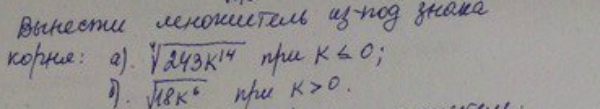 Вынести множитель из-под знака
корня: а). ∜243k¹⁴ при k ≤ 0;
б). √18k⁶ при k > 0.